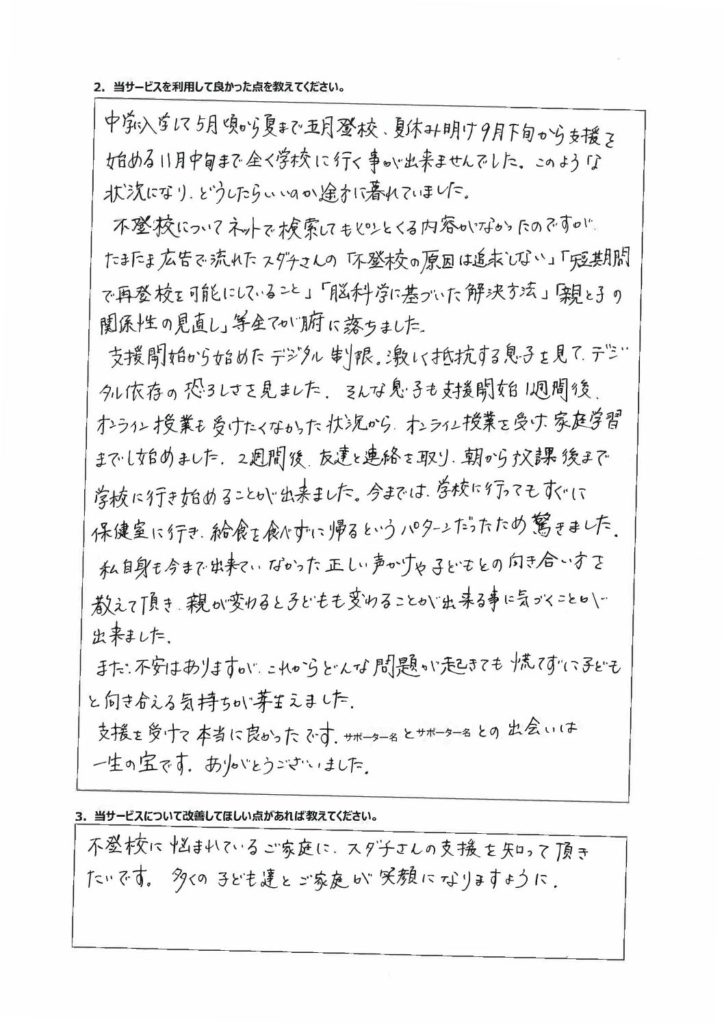 2. 当サービスを利用して良かった点を教えてください。
中学に入学して5月頃から夏まで五月登校、夏休み明け9月下旬から支援を
始める11月中旬まで全く学校に行く事が出来ませんでした。このような
状況になり、どうしたらいいのか途方に暮れていました。
不登校についてネットで検索してもピンとくる内容がなかったのですが、
たまたま広告で流れたスダチさんの「不登校の原因は追求しない」「短期間
で再登校を可能にしていること」「脳科学に基づいた解決方法」「親と子の
関係性の見直し」等全てが腑に落ちました。
支援開始から始めたデジタル制限。激しく抵抗する息子を見て、デジ
タル依存の恐ろしさを見ました。そんな息子も支援開始1週間後、
オンライン授業も受けたくなかった状況から、オンライン授業を受け、家庭学習
までし始めました。2週間後、友達と連絡を取り、朝から放課後まで
学校に行き始めることが出来ました。今までは、学校に行ってもすぐに
保健室に行き、給食を食べずに帰るというパターンだったため驚きました。
私自身も今まで出来ていなかった正しい声かけや子どもとの向き合い方を
教えて頂き、親が変わると子どもも変わることが出来る事に気づくことが
出来ました。
まだ不安はありますが、これからどんな問題が起きても慌てずに子ども
と向き合える気持ちが芽生えました。
支援を受けて本当に良かったです。サポーター名とサポーター名との出会いは
一生の宝です。ありがとうございました。
3. 当サービスについて改善してほしい点があれば教えてください。
不登校に悩まれているご家庭に、スダチさんの支援を知って頂き
たいです。多くの子ども達とご家庭が笑顔になりますように。